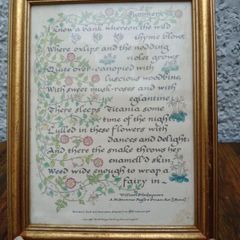 Summer
I know a bank whereon the wild
thyme blows,
Where oxlips and the nodding
violet grows
Quite over-canopied with
luscious woodbine,
With sweet musk-roses and with
eglantine:
There sleeps Titania some
time of the night,
Lulled in these flowers with
dances and delight;
And there the snake throws her
enamell'd skin,
Weed wide enough to wrap a
fairy in.
William Shakespeare
A Midsummer Night's Dream Act